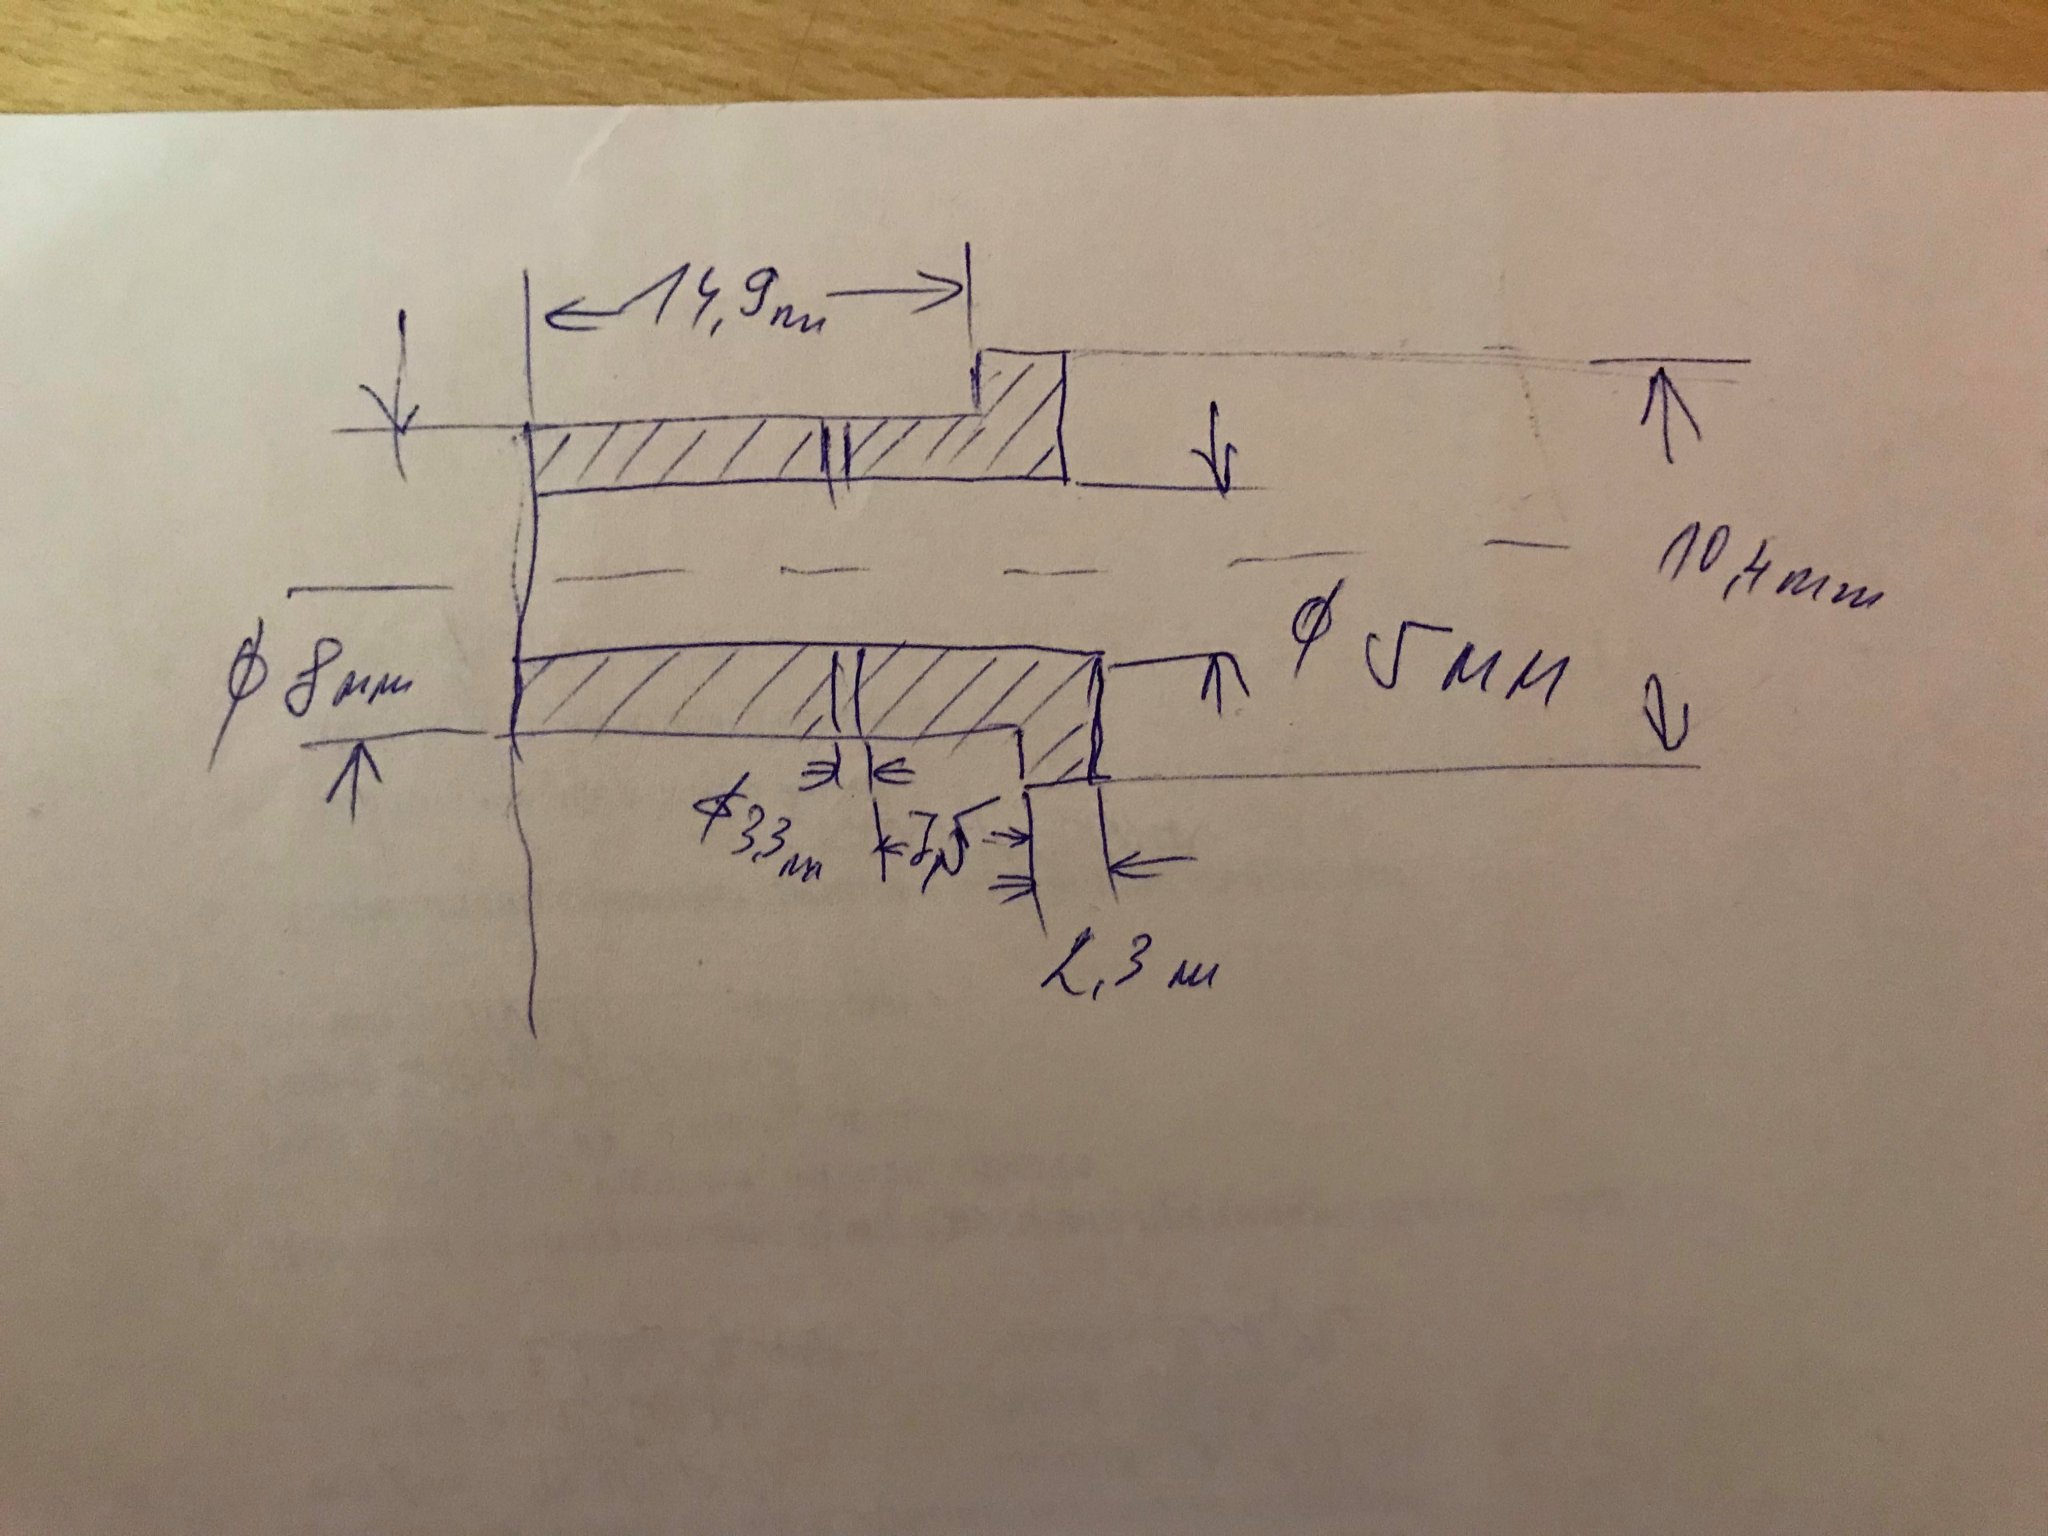 14,9мм
10,4мм
ϕ 5мм
ϕ 8мм
ϕ3,3мм
7,5
2,3м